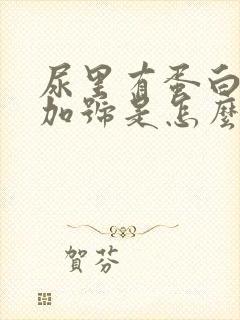 尿里有蛋白
加號是怎麼
賀芬